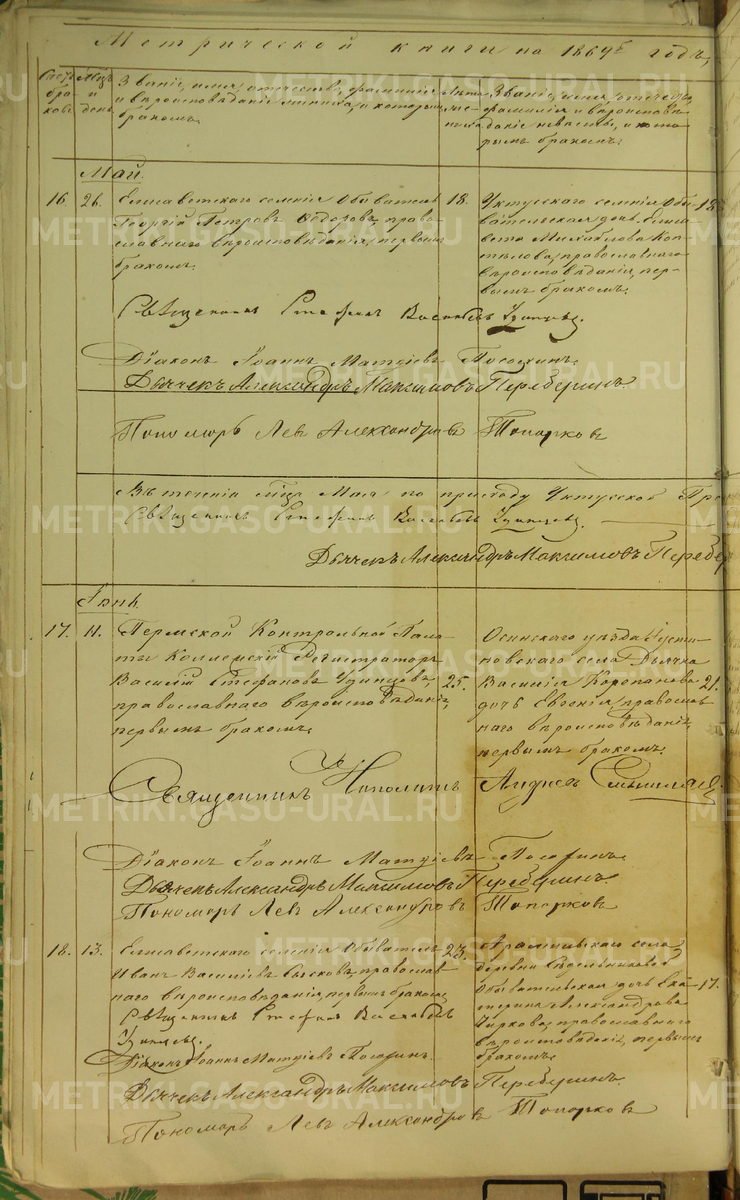 Метрической книги на 1869й годъ,
Счетъ браковъ.
Мцъ и день.
Званіе, имя, отечество, фамилія и вѣроисповѣданіе жениха, и которымъ бракомъ.
Лѣта жениха
Званіе, имя, отечество, фамилія и вѣроисповѣданіе невесты, и которымъ бракомъ.
Май.
16. 26.
Елисаветскаго селенія Обыватель
Георгій Петровъ Ѳедоровъ, право-
славнаго вѣроисповѣданія, первымъ
бракомъ.
18.
Уктусскаго селенія Обы-
вательская дочь Елиса-
вета Михайлова Коп-
тѣлова, православнаго
вѣроисповѣданія, пер-
вымъ бракомъ.
18.
Священникъ Стефанъ Васильевъ Удинцевъ.
Діаконъ Іоаннъ Матѳіевъ
Дьячекъ Александръ Максимовъ Переберинъ.
Пономарь Левъ Александровъ Топорковъ
Въ теченіи мца Мая по приходу Уктусской
Священникъ Стефанъ Васильевъ Удинцевъ.
Дьячекъ Александръ Максимовъ Перебер
Іюнь.
17. 11.
Пермской Контрольной Пала-
ты Коллежскій Регистраторъ
Василій Стефановъ Удинцовъ,
православнаго вѣроисповѣданія,
первымъ бракомъ.
25.
Осинскаго уѣзда Усти-
новскаго села Дьячка
Василія Коропанова
дочь Евгенія, православ
наго вѣроисповѣданія,
первымъ бракомъ.
21.
Священникъ Ипполитъ Андреевъ
Діаконъ Іоаннъ Матѳіевъ
Дьячекъ Александръ Максимовъ Переберинъ.
Пономарь Левъ Александровъ Топорковъ
18. 13.
Елисаветскаго селенія Обыватель
Иванъ Василіевъ Сысковъ, православ-
наго вѣроисповѣданія, первымъ бракомъ,
23.
Арамильскаго села
деревни
Обывательская дочь Ека-
терина Александрова
Чиркова, православнаго
вѣроисповѣданія, первымъ
бракомъ.
17.
Священникъ Стефанъ Васильевъ
Удинцевъ.
Діаконъ Іоаннъ Матѳіевъ
Дьячекъ Александръ Максимовъ Переберинъ.
Пономарь Левъ Александровъ Топорковъ
METRIKI.GASO-URAL.RU